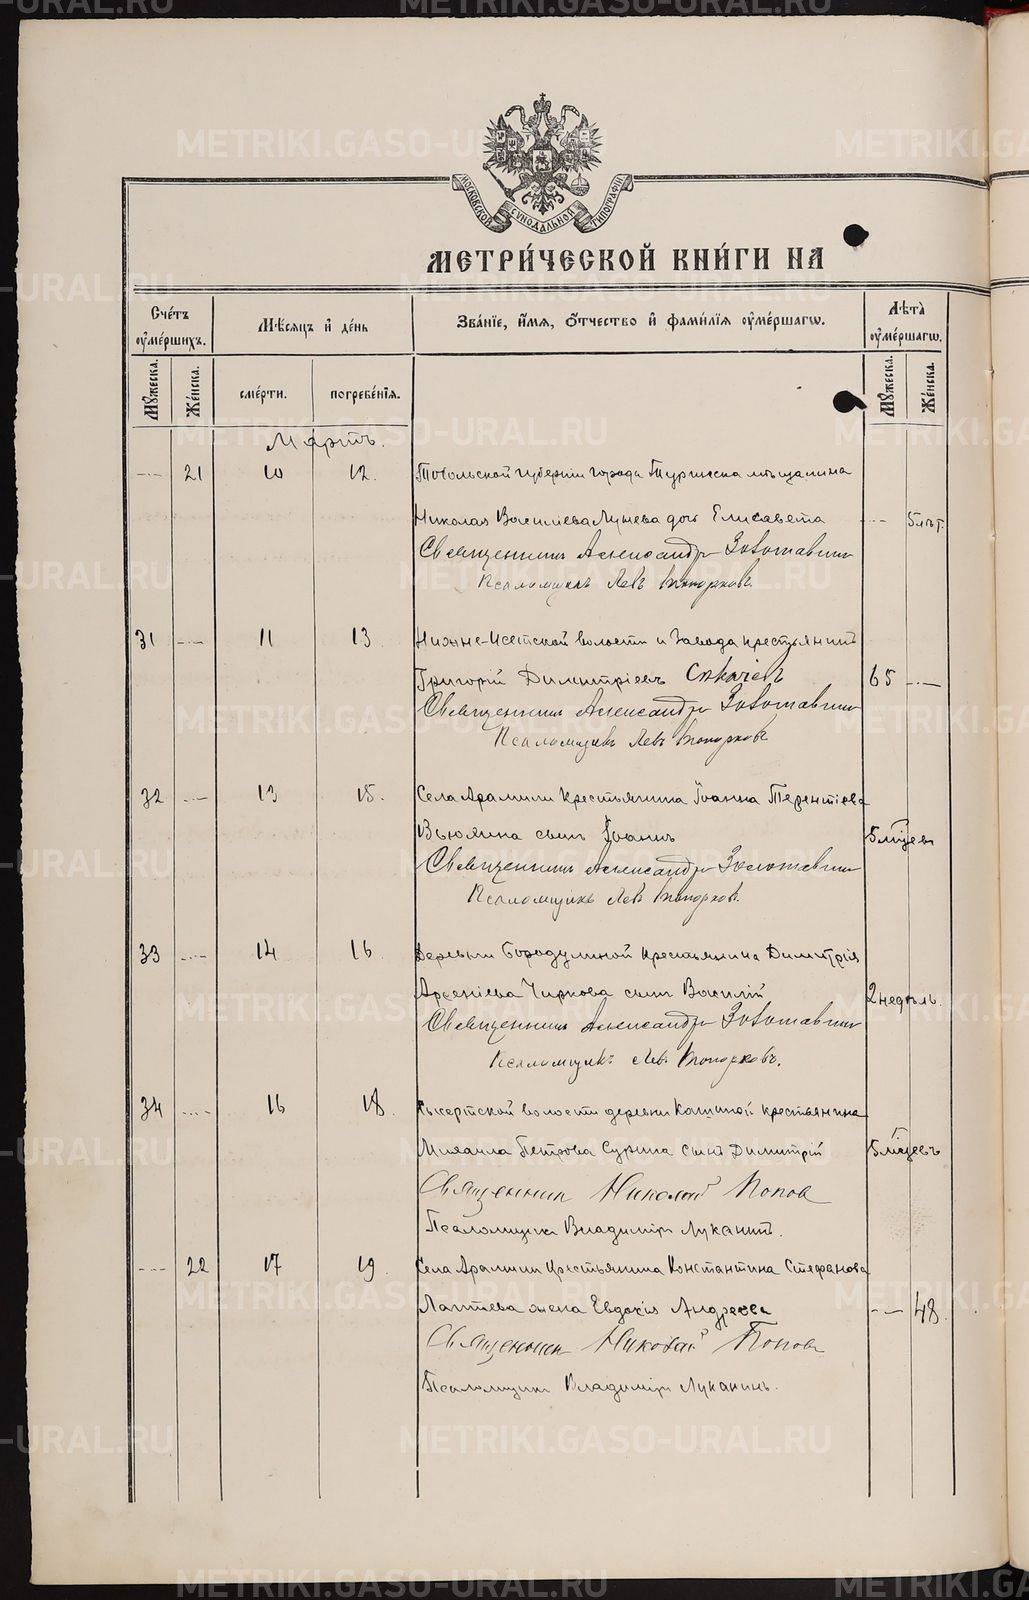 МОСКОВСКОЙ СУНОДАЛЬНОЙ ТИПОГРАФІИ
МЕТРИ́ЧЕСКОЙ КНИ́ГИ НА
Сче́тъ оумершихъ.
Мѣсяцъ и де́нь
Зва́ніе, и́мя, о́тчество и фами́лія оуме́ршагѡ.
Лѣта̀ оуме́ршагѡ.
Мꙋжеска.
Же́нска.
сме́рти.
погребе́нія.
Мꙋжеска.
Же́нска.
Мартъ.
21 10 12. Тобольской губерніи города Туринска мѣщанина
Николая Васильева Лунева дочь Елисавета 5 лѣт.
Священникъ Александръ Золотавинъ
Псаломщикъ Левъ Топорковъ.
31 11 13 Нижне-Исетской волости и Завода крестьянинъ
Григорій Димитріевъ 65
Священникъ Александръ Золотавинъ
Псаломщикъ Левъ Топорковъ
32 13 15. Села Арамили крестьянина Іоанна Терентіева
Вьюхина сынъ Іоаннъ 5 мцевъ
Священникъ Александръ Золотавинъ
Псаломщикъ Левъ Топорковъ.
33 14 16 Деревни Бородулиной крестьянина Димитрія
Арсеніева Чиркова сынъ Василій 2 недѣль.
Священникъ Александръ Золотавинъ
Псаломщикъ Левъ Топорковъ.
34 16 18. Сысертской волости деревни Кашиной крестьянина
Михаила Петрова Сурина сынъ Димитрій 5 мцевъ
Священник Николай Попов
Псаломщикъ Владиміръ Луканинъ.
22 17 19. Села Арамили крестьянина Константина Стефанова
Лаптева жена Евдокія Андреева 48.
Священник Николай Попов
Псаломщикъ Владиміръ Луканинъ.
METRIKI.GASO-URAL.RU